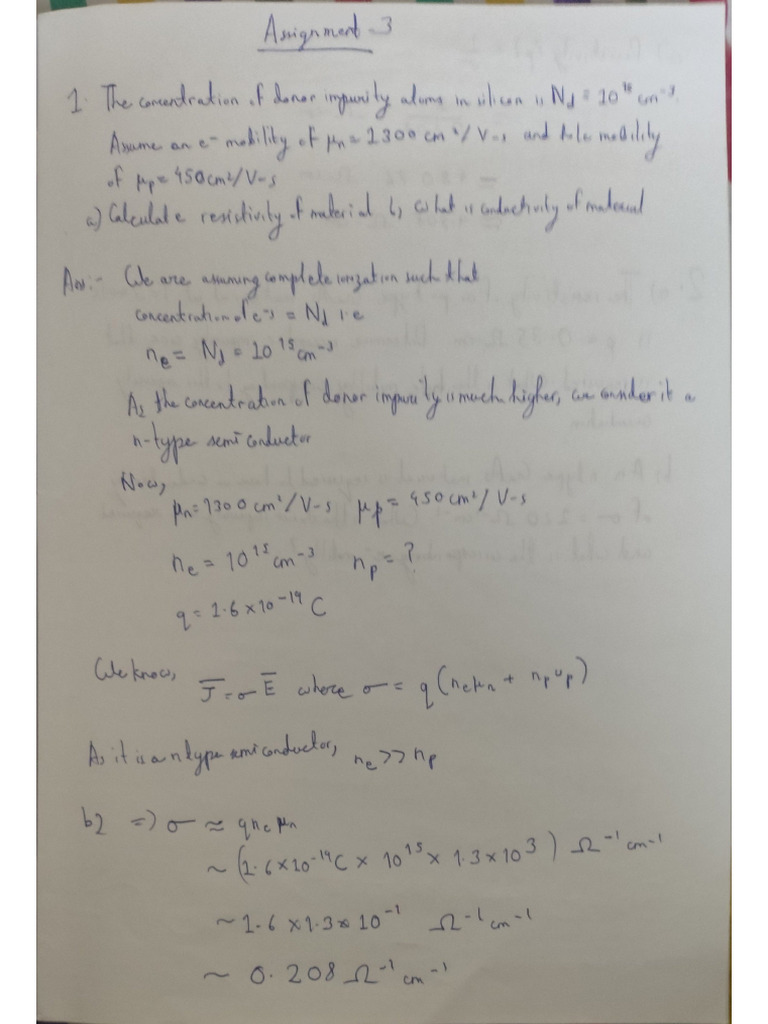 Assignment - 3
1. The concentration of donor impurity atoms in silicon is Nd = 10¹⁵ cm⁻³.
Assume an e⁻ mobility of μn = 1300 cm²/V-s and hole mobility
of μp = 450cm²/V-s
a) Calculate resistivity of material b) What is conductivity of material
Ans:- We are assuming complete ionization such that
concentration of e⁻s = Nd i.e
ne = Nd = 10¹⁵ cm⁻³
As the concentration of donor impurity is much higher, we consider it a
n-type semi conductor
Now,
μn = 1300 cm²/V-s μp = 450 cm²/V-s
ne = 10¹⁵ cm⁻³ np = ?
q = 1.6 × 10⁻¹⁹ C
We know, J̅ = σ E̅ where σ = q (neμn + npμp)
As it is a n type semiconductor, ne >> np
b) => σ ≈ qneμn
~ (1.6×10⁻¹⁹C × 10¹⁵ × 1.3×10³) Ω⁻¹ cm⁻¹
~ 1.6 × 1.3 × 10⁻¹ Ω⁻¹ cm⁻¹
~ 0.208 Ω⁻¹ cm⁻¹